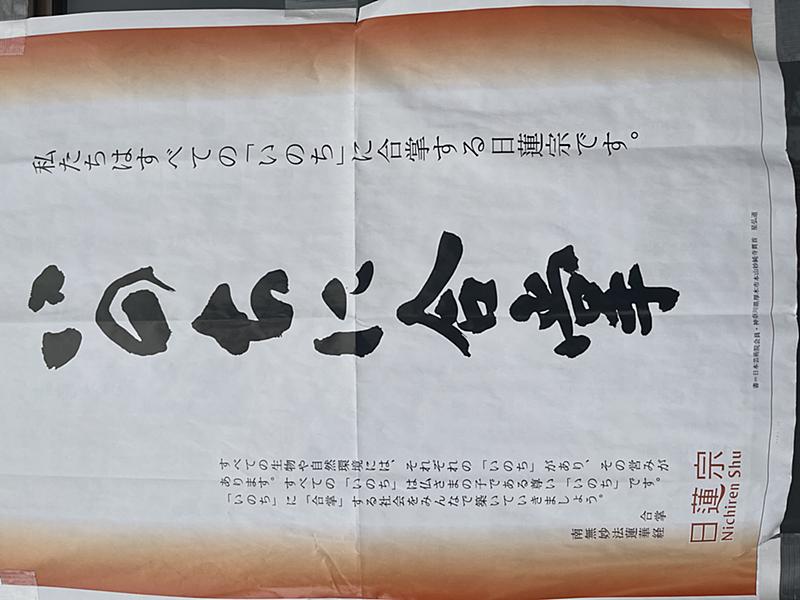 私たちはすべての「いのち」に合掌する日蓮宗です。
いのちに合掌
すべての生物や自然環境には、それぞれの「いのち」があり、その営みが
あります。すべての「いのち」は仏さまの子である尊い「いのち」です。
「いのち」に「合掌」する社会をみんなで築いていきましょう。
合掌
南無妙法蓮華経
日蓮宗
Nichiren Shu
書=日本芸術院会員・神奈川県厚木市本山妙純寺貫首 星弘道